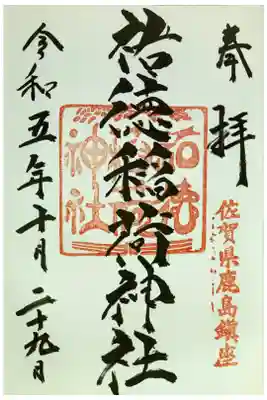 奉拝
佐賀県鹿島鎮座
祐徳稲荷神社
令和五年十月二十九日